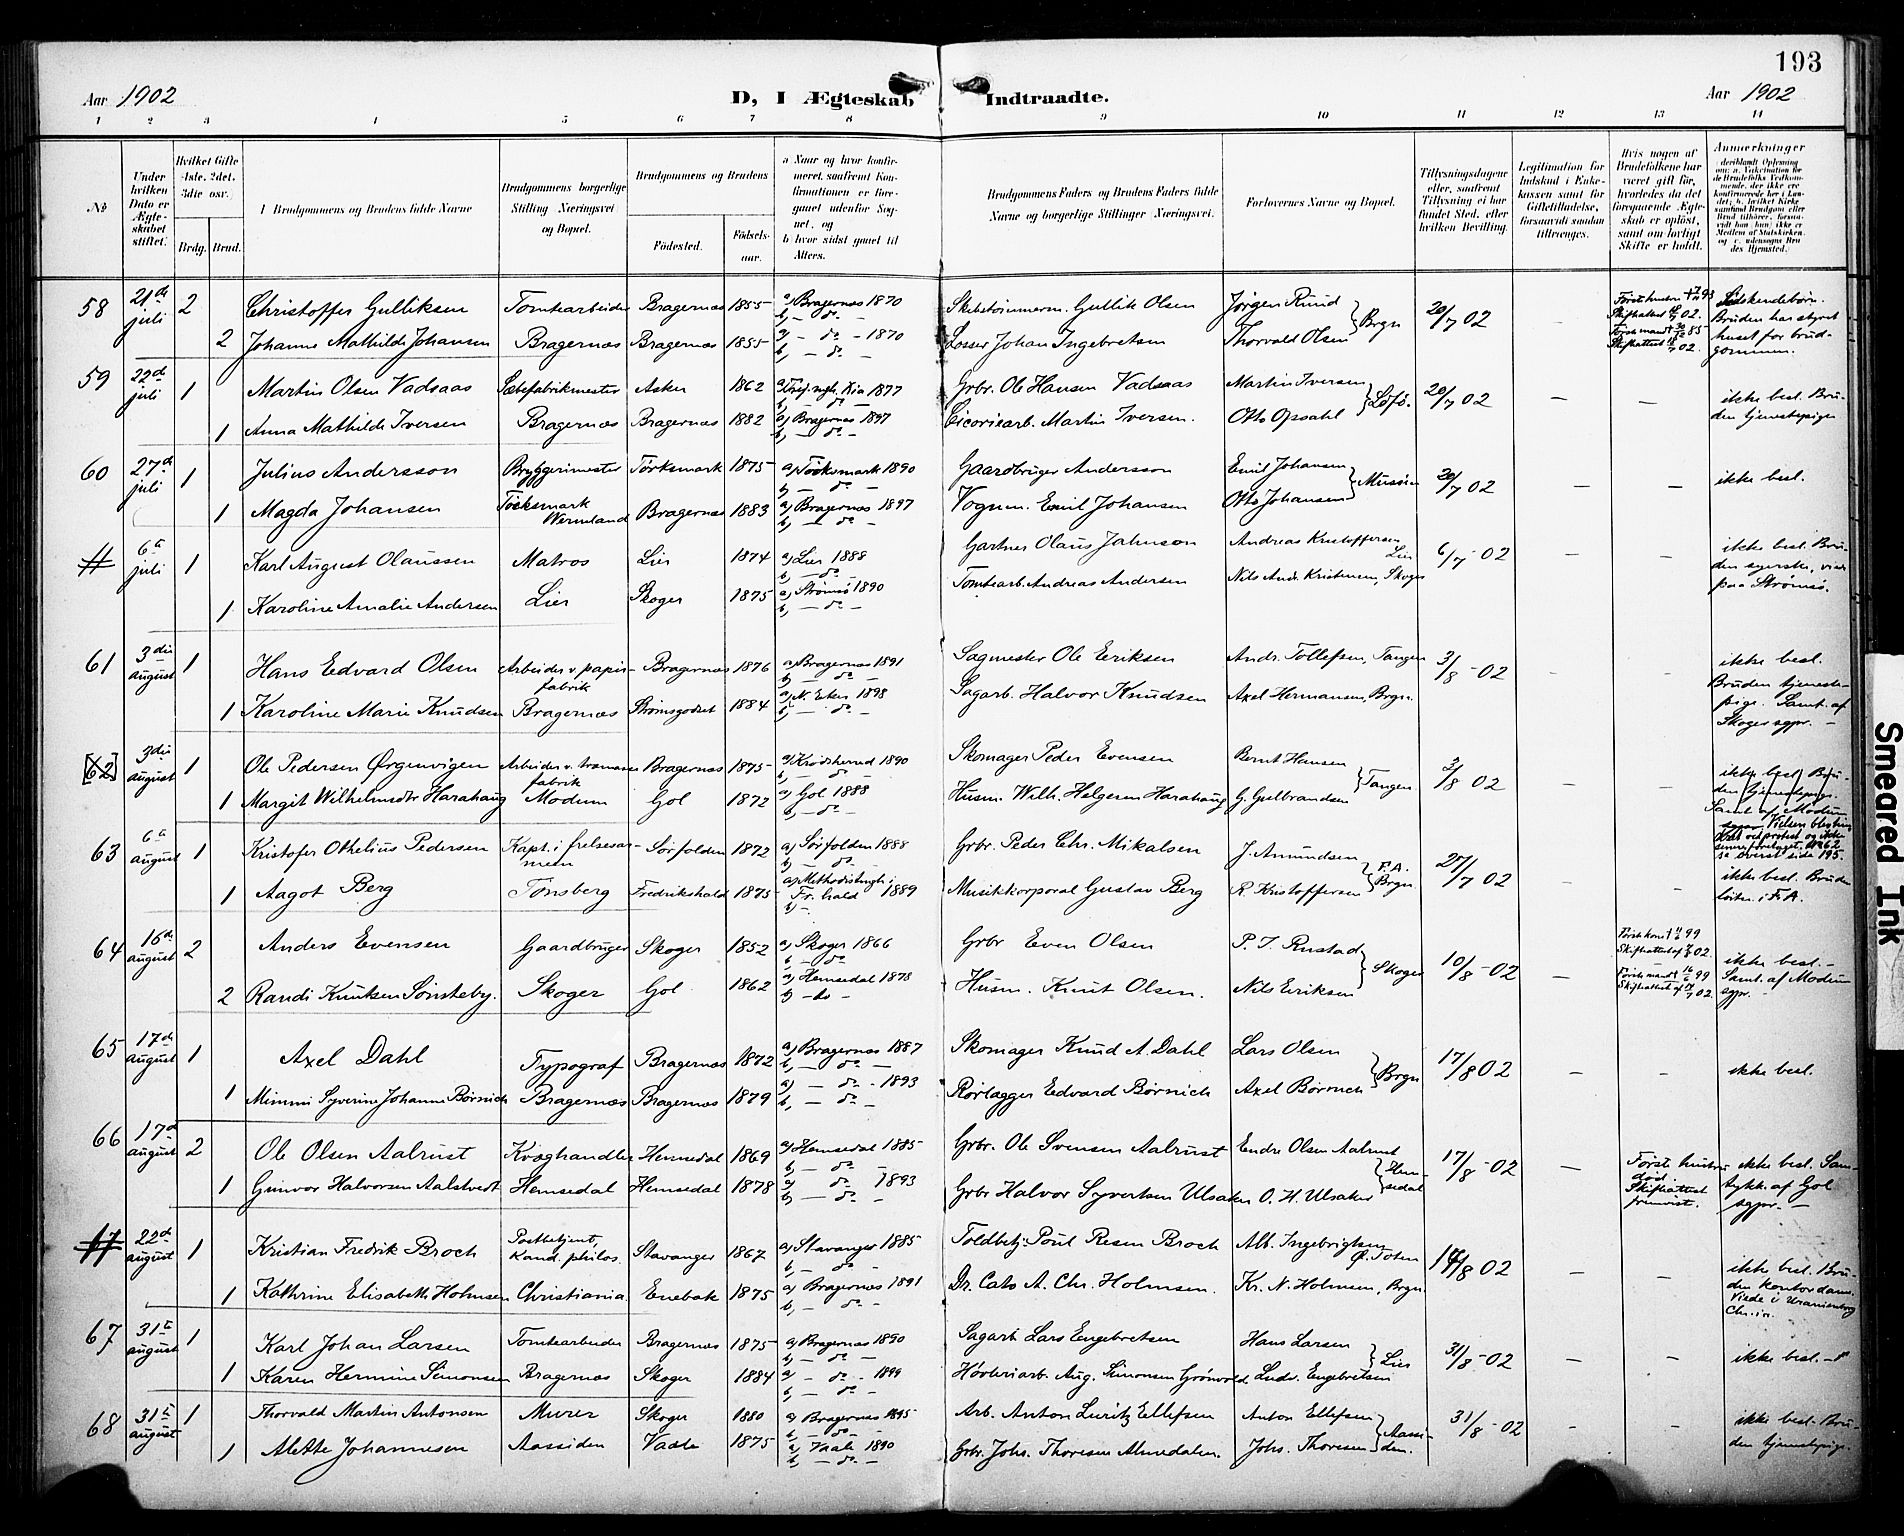 193
Aar 1902
D, I Ægteskab Indtraadte.
Aar 1902
1 2 3 4 5 6 7 8 9 10 11 12 13 14
No
Under hvilken Dato er Ægteskabet stiftet.
Hvilket Gifte 1ste, 2det, 3die osv.
Brdg. Brud.
I Brudgommens og Brudens fulde Navne
Brudgommens borgerlige Stilling Næringsvei og Bopæl.
Brudgommens og Brudens
Fødested.
Fødselsaar.
a Naar og hvor konfirmeret, saafremt Konfirmationen er foregaaet udenfor Sognet, og
b hvor sidst gaaet til Alters.
Brudgommens Faders og Brudens Faders fulde Navne og borgerlige Stillinger Næringsvei.
Forlovernes Navne og Bopæl.
Tillysningsdagene eller, saafremt Tillysning ei har fundet Sted, efter hvilken Bevilling.
Legitimation for Indskud i Enkekassen samt for Giftetilladelse, forsaavidt saadan tiltrænges.
Hvis nogen af Brudefolkene har været gift før, hvorledes da det foregaaende Ægteskab er opløst, samt om lovligt Skifte er holdt.
Anmærkninger
58 21de juli 2 Christoffer Gulliksen Tomtearbeider Bragernæs 1855 a) Bragernæs 1870 b, — do — Skibstømmerm. Gullik Olsen Jørgen Ruud Brgn 20/7 02 — Søskendebørn.
2 Johanne Mathilde Johansen Bragernæs Bragernæs 1855 a) — do — 1870 b, — do — Losser Johan Ingebretsen Thorvald Olsen Bruden har styret huset for brudgommen.
59 22de juli 1 Martin Olsen Vadsaas Sæbefabrikmester Asker 1862 1877 Grbr. Ole Hansen Vadsaas Martin Iversen 20/7 02 — —
1 Anna Mathilde Iversen Bragernæs Bragernæs 1882 a) Bragernæs 1897 b, — do — Cicoriearb. Martin Iversen. Otto Opsahl ikke besl. Bruden tjenestepige
60 27de juli 1 Julius Andersson Bryggerimester Töcksmark 1875 a) Töcksmark 1890 b, — do — Gaardbruger Andersson Emil Johansen 20/7 02 — — ikke besl.
1 Magda Johansen Töcksmark Wermland Bragernæs 1883 a) Bragernæs 1897 b, — do — Vognm. Emil Johansen Otto Johansen
# 6te juli 1 Karl August Olaussen Matros Lier 1874 a) Lier 1888 b, — do — Gartner Olaus Johnson Andreas Kristoffersen Lier 6/7 - 02 — — ikke besl. Bruden syerske, viet paa Strømsø.
1 Karoline Amalie Andersen Lier Skoger 1875 a) Strømsø 1890 b, — do — Tomtearb. Andreas Andersen Nils Andr. Kristensen, Skoger
61 3die august 1 Hans Edvard Olsen Arbeider v. papirfabrik Bragernæs 1876 a) Bragernæs 1891 b, — do — Sagmester Ole Eriksen Andr. Tollefsen, Tangen 3/8 - 02 — — ikke besl.
1 Karoline Marie Knudsen Bragernæs Strømsgodset 1884 a) N. Eker 1898 b, — do — Sagarb. Halvor Knudsen Axel Hermansen, Brgn. Bruden tjenestepige. Samt. af Skoger sgpr. —
[62] 3die august 1 Ole Pedersen Ørgenvigen Arbeider v. fabrik Bragernæs 1875 a) Krødsherred 1890 b, — do — Skomager Peder Evensen Bernt Hansen Tangen 3/8 02 — —
1 Margit Wilhelmsdtr Harahaug Modum Gol 1872 a) Gol 1888 b, — do — Husm. Wilh. Helgesen Harahaug G. Gulbrandsen ikke besl. Bruden tjenestepige. Samt. af Modum
se øverst side 195.
63 6te august 1 Kristofer Othelius Pedersen Kapt. i frelsesarmeen Sørfolden 1872 a) Sørfolden 1888 b, — do — Grbr. Peder Chr. Mikalsen J. Amundsen F.A. Brgn. 27/7 02 — —
1 Aagot Berg Tønsberg Fredrikshald 1875 a) Methodistmgh. i Fr.hald 1889 b, — Musikkorporal Gustav Berg R. Kristoffersen ikke besl. Bruden i F.A.
64 16de august 2 Anders Evensen Gaardbruger Skoger 1852 a) Skoger 1866 b, — do Grbr Even Olsen P. T. Rustad Skoger 10/8 - 02 — ikke besl. —
2 Randi Knutsen Sønsteby. Skoger Gol 1862 a) Hemsedal 1878 b, — do — Husm. Knut Olsen. Nils Eriksen Samt. af Modum sgpr. —
65 17de august 1 Axel Dahl Typograf Bragernæs 1872 a) Bragernæs 1887 b, — do — Skomager Knud A. Dahl Lars Olsen Brgn 17/8 02 — — ikke besl.
1 Mimmi Syverine Johanne Børnich Bragernæs Bragernæs 1879 a) — do — 1893 b, — do — Rørlægger Edvard Børnich Axel Børnich
66 17de august 2 Ole Olsen Aalrust Kvæghandler Hemsedal 1869 a) Hemsedal 1885 b, — do — Grbr. Ole Svensen Aalrust Endre Olsen Aalrust Hemsedal 17/8 - 02 — Første hustru død. Skifteattest fremvist. ikke besl. Samtykk. af Gol sgpr. —
1 Gunvor Halvorsen Aalstvedt Hemsedal Hemsedal 1878 a) do — 1893 b, — do — Grbr Halvor Syvertsen Ulsaker O. H. Ulsaker
67 22de august 1 Kristian Fredrik Broch Postbetjent, Kand. philos. Stavanger 1867 a) Stavanger 1885 b, — do — Toldbetj. Poul Resen Broch Alb. Ingebrigtsen Ø. Toten 17/8 02 — — ikke besl. Bruden kontordame. Viede i Uranienborg Chr.ia.
1 Kathrine Elisabeth Holmsen Christiania. Enebak 1875 a) Bragernæs 1891 b, — do — Dr. Cato A. Chr. Holmsen. Kr. N. Holmsen, Brgn.
67 31te august 1 Karl Johan Larsen Tomtearbeider Bragernæs 1875 a) Bragernæs 1890 b, — do — Sagarb Lars Engebretsen Hans Larsen Lier 31/8 - 02 — — ikke besl. —
1 Karen Hermine Simonsen Bragernæs Skoger 1884 a) — do — 1899 b, — do — Høvleriarb. Aug. Simonsen Grønvold Ludv. Engebretsen
68 31te august 1 Thorvald Martin Antonsen Murer Skoger 1880 a) Bragernæs 1895 b, — do — Arb. Anton Lauritz Ellefsen Anton Ellefsen Aassiden. 31/8 - 02 — — ikke besl. Bruden tjenestepige.
1 Alette Johannesen Aassiden Vaale 1875 a) Vaale 1890 b, — do — Grbr. Johs. Thoresen Almedalen. Johs. Thoresen
Smeared Ink